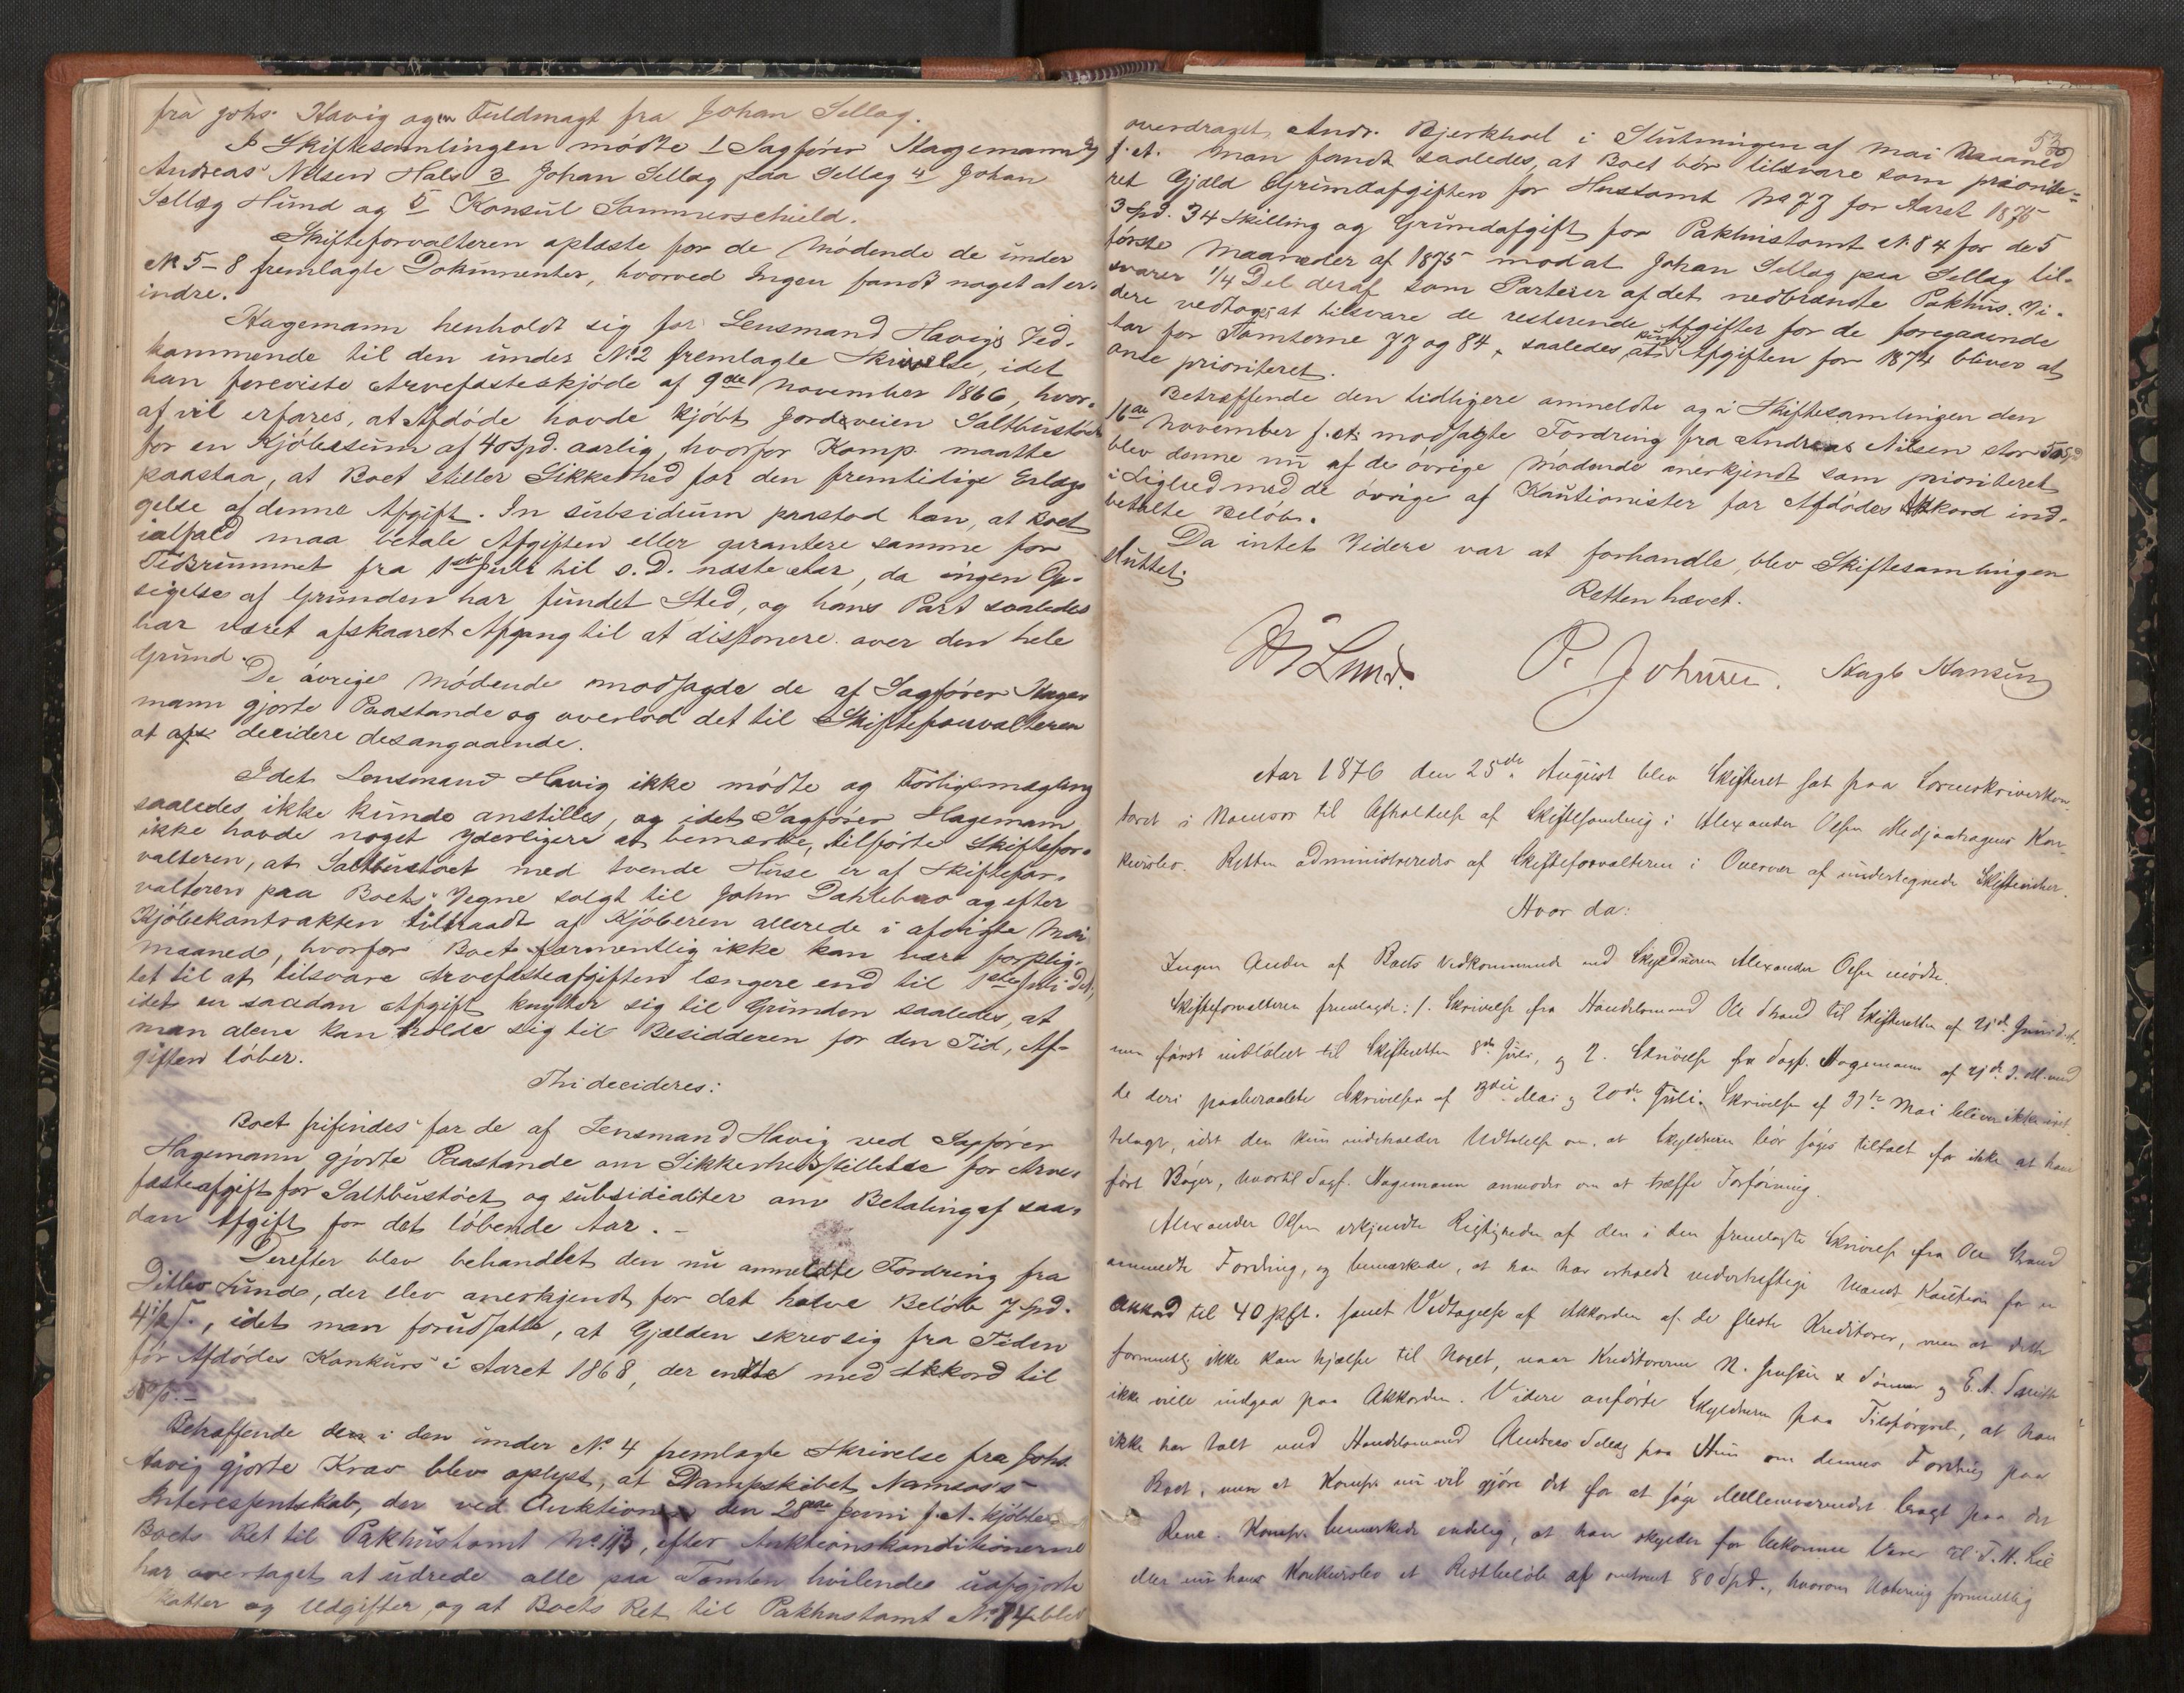 fra Johs. Havig og en Fuldmagt fra Johan Sellæg.
I Skiftesamlingen mødte 1 Sagfører Hagemann 2
Andreas Nilsen Hals 3 Johan Sellæg paa Sellæg 4 Johan
Sellæg Hund og 5 Konsul Sommerschield.
Skifteforvalteren oplæste for de Mødende de under
No 5-8 fremlagte Dokumenter, hvorved Ingen fandt noget at er-
indre.
Hagemann henholdt sig for Lensmand Havigs Ved-
kommende til den under No. 2 fremlagte Skrivelse, idet
han foreviste Arvefæsteskjøde af 9de November 1866, hvor-
af vil erfares, at Afdøde havde kjøbt Jordeveien Saltbustøet
for en Kjøbesum af 40 Spd. aarlig, hvorfor Komp. maatte
paastaa, at Boet stiller Sikkerhed for den fremtidige Erlæg-
gelse af denne Afgift. In subsidium paastod han, at Boet
ialfald maa betale Afgiften eller garantere samme for
Tidsrummet fra 1ste Juli til s. D. næste Aar, da ingen Op-
sigelse af Grunden har fundet Sted, og hans Part saaledes
har været afskaaret Afgang til at disponere over den hele
Grund.
De øvrige Mødende modsagde de af Sagfører Hage-
mann gjorte Paastande og overlod det til Skifteforvalteren
at afs decidere desangaaende.
Idet Lensmand Havig ikke mødte og Forligsmægling
saaledes ikke kunde anstilles, og idet Sagfører Hagemann
ikke havde noget yderligere at bemærke, tilførte Skiftefor-
valteren, at Saltbustøet med tvende Huse er af Skiftefor-
valteren paa Boets Vegne solgt til John Dahlebro og efter
Kjøbekontrakten tiltraadt af Kjøberen allerede i afvigte Mai
Maaned, hvorfor Boet formentlig ikke kan være forplig-
tet til at tilsvare Arvefæsteafgiften længere end til 1ste Juli d.A.,
idet en saadan Afgift knytter sig til Grunden saaledes, at
man alene kan holde sig til Besidderen for den Tid, Af-
giften løber.
Thi decideres:
Boet frifindes for de af Lensmand Havig ved Sagfører
Hagemann gjorte Paastande om Sikkerhedsstillelse for Arve-
fæsteafgift for Saltbustøet og subsidialiter om Betaling af saa-
dan Afgift for det løbende Aar. -
Derefter blev behandlet den nu anmeldte Fordring fra
Ditlev Lund, der blev anerkjendt for det halve Beløb 7 Spd.
idet man forudsatte, at Gjælden skrev sig fra Tiden
før Afdødes Konkurs i Aaret 1868, der endte med Akkord til
50%. -
Betræffende den i den under No. 4 fremlagte Skrivelse fra Johs.
Havig gjorte Krav blev oplyst, at Dampskibet Namsos's
Interessentskab, der ved Auktion den 28de Juni f. A. kjøbte
Boets Ret til Pakhustomt No. 113, efter Auktionskonditionerne
har overtaget at udrede alle paa Tomten hvilende uafgjorte
Skatter og Udgifter, og at Boets Ret til Pakhustomt No. 84 blev
53
overdraget Andr. Bjerkhoel i Slutningen af Mai Maaned
f. A. Man fandt saaledes, at Boet bør tilsvare som priorite-
ret Gjæld Grundafgiften for Hustomt No 77 for Aaret 1875
3 Spd. 34 Skilling og Grundafgift for Pakhustomt N. 84 for de 5
første Maaneder af 1875 mod at Johan Sellæg paa Sellæg til-
svarer 1/4 Del deraf som Parteier af det nedbrændte Pakhus. Vi-
dere vedtoges at tilsvare de resterende Afgifter for de foregaaende
Aar for Tomterne 77 og 84, saaledes at kun Afgiften for 1874 bliver at
anse prioriteret.
Betræffende den tidligere anmeldte og i Skiftesamlingen den
16de November f. A. modsagte Fordring fra Andreas Nilsen stor
blev denne nu af de øvrige Mødende anerkjendt som prioriteret
i Lighed med de øvrige af Kautionister for Afdødes Akkord ind-
betalte Beløb.
Da intet Videre var at forhandle, blev Skiftesamlingen
sluttet.
Retten hævet.
Lund. P. Johnsen. Skage Hansen
Aar 1876 den 25de August blev Skifteret sat paa Sorenskriverkon-
toret i Namsos til Afholdelse af Skiftesamling i Alexander Olsen Medjaahaugens Kon-
kursbo. Retten administreredes af Skifteforvalteren i Overvær af undertegnede Skiftevidner.
Hvor da:
Ingen Anden af Boets Vedkommende end Skyldneren Alexander Olsen mødte.
Skifteforvalteren fremlagde: 1. Skrivelse fra Handelsmand Ole Strand til Skifteretten af 21de Juni d. A.
men først indløbet til Skifteretten 8de Juli, og 2. Skrivelse fra Sagf. Hagemann af 21de d. M. med
de deri paaberaabte Skrivelser af Mai og 20de Juli. Skrivelse af 31te Mai bliver ikke ind-
taget, idet den kun indeholder Udtalelse om, at Skyldneren bør søges tiltalt for ikke at have
ført Bøger, hvortil Sagf. Hagemann anmodes om at træffe Forføining.
Alexander Olsen erkjendte Rigtigheden af den i den fremlagte Skrivelse fra Ole Strand
anmeldte Fordring, og bemærkede, at han har erholdt vederheftige Mænds Kaution for en
Akkord til 40 pCt. samt Vedtagelse af Akkorden af de fleste Kreditorer, men at dette
formentlig ikke kan hjælpe til Noget, naar Kreditorerne N. Jensen & Sønner og E. A. Smith
ikke ville indgaa paa Akkorden. Videre anførte Skyldneren paa Tilspørgsel, at han
ikke har talt med Handelsmand Andreas Sellæg paa Hun om dennes Fordring paa
Boet, men at Komp. nu vil gjøre det for at søge Mellemværendet bragt paa det
Rene. Komp. bemærkede endelig, at han skylder for bekomne Varer til T. M. Lie
eller nu hans Konkursbo et Restbeløb af omtrent 80 Spd., hvorom formentlig